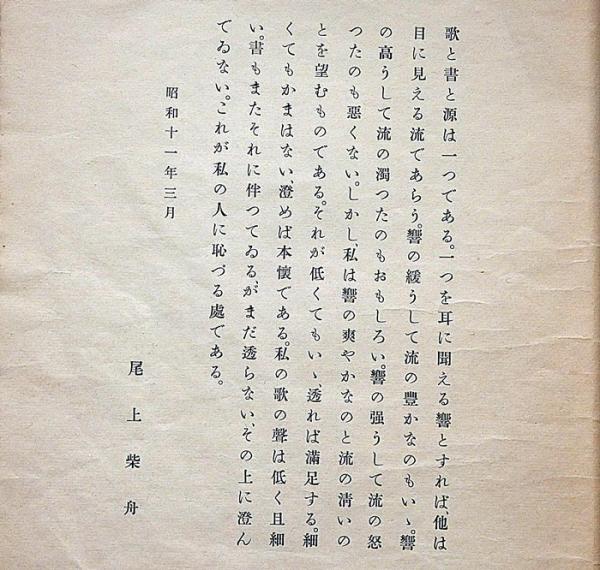 歌と書と源は一つである。一つを耳に聞える響とすれば、他は
目に見える流であらう。響の緩うして流の豊かなのもいゝ。響
の高うして流の濁つたのもおもしろい。響の强うして流の怒
つたのも悪くない。しかし、私は響の爽やかなのと流の淸いの
とを望むものである。それが低くてもいゝ、透れば滿足する。細
くてもかまはない、澄めば本懷である。私の歌の聲は低く且細
い。書もまたそれに伴つてゐるが、まだ透らない、その上に澄ん
でゐない。これが私の人に恥づる處である。
昭和十一年三月
尾上柴舟